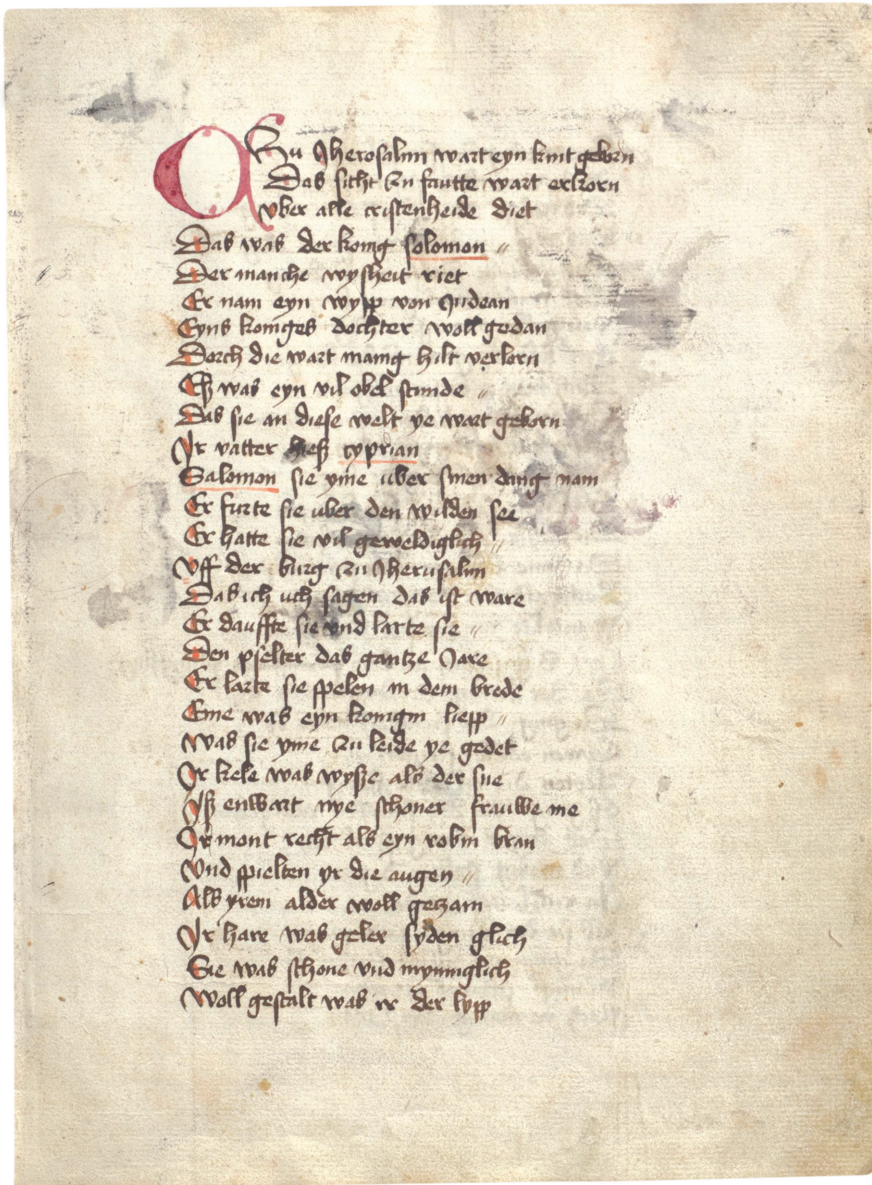 Zu Jherosalim wart eyn kint geborn
Das sicht zu fautte wart erkorn
vber alle cristenheide diet
Das was der konig solomon //
Der manche wyßheit riet
Er nam eyn wypp von Judean
Eyns koniges dochter woll gedan
Dorch die wart manig hilt verlorn
Eß was eyn vil obel stunde //
Das sie an diese welt ye wart geborn
Jr vatter hieß cyprian
Salomon sie yme uber sinen dang nam
Er furte sie uber den wilden see
Er hatte sie vil geweldiglich //
Vff der burg zu Jherusalim
Das ich uch sagen das ist ware
Er dauffte sie vnd larte sie //
Den pselter das gantze Jare
Er larte sie spelen in dem brede
Eme was eyn konigin liepp //
Was sie yme zu leide ye gedet
Jr kele was wyße als der sne
Jß enwart nye schoner frauwe me
Jr mont recht als eyn robin bran
Vnd spielten yr die augen //
Als yrem alder woll getzam
Jr hare was geler syden glich
Sie was schone vnd mynniglich
Woll gestalt was er der lypp